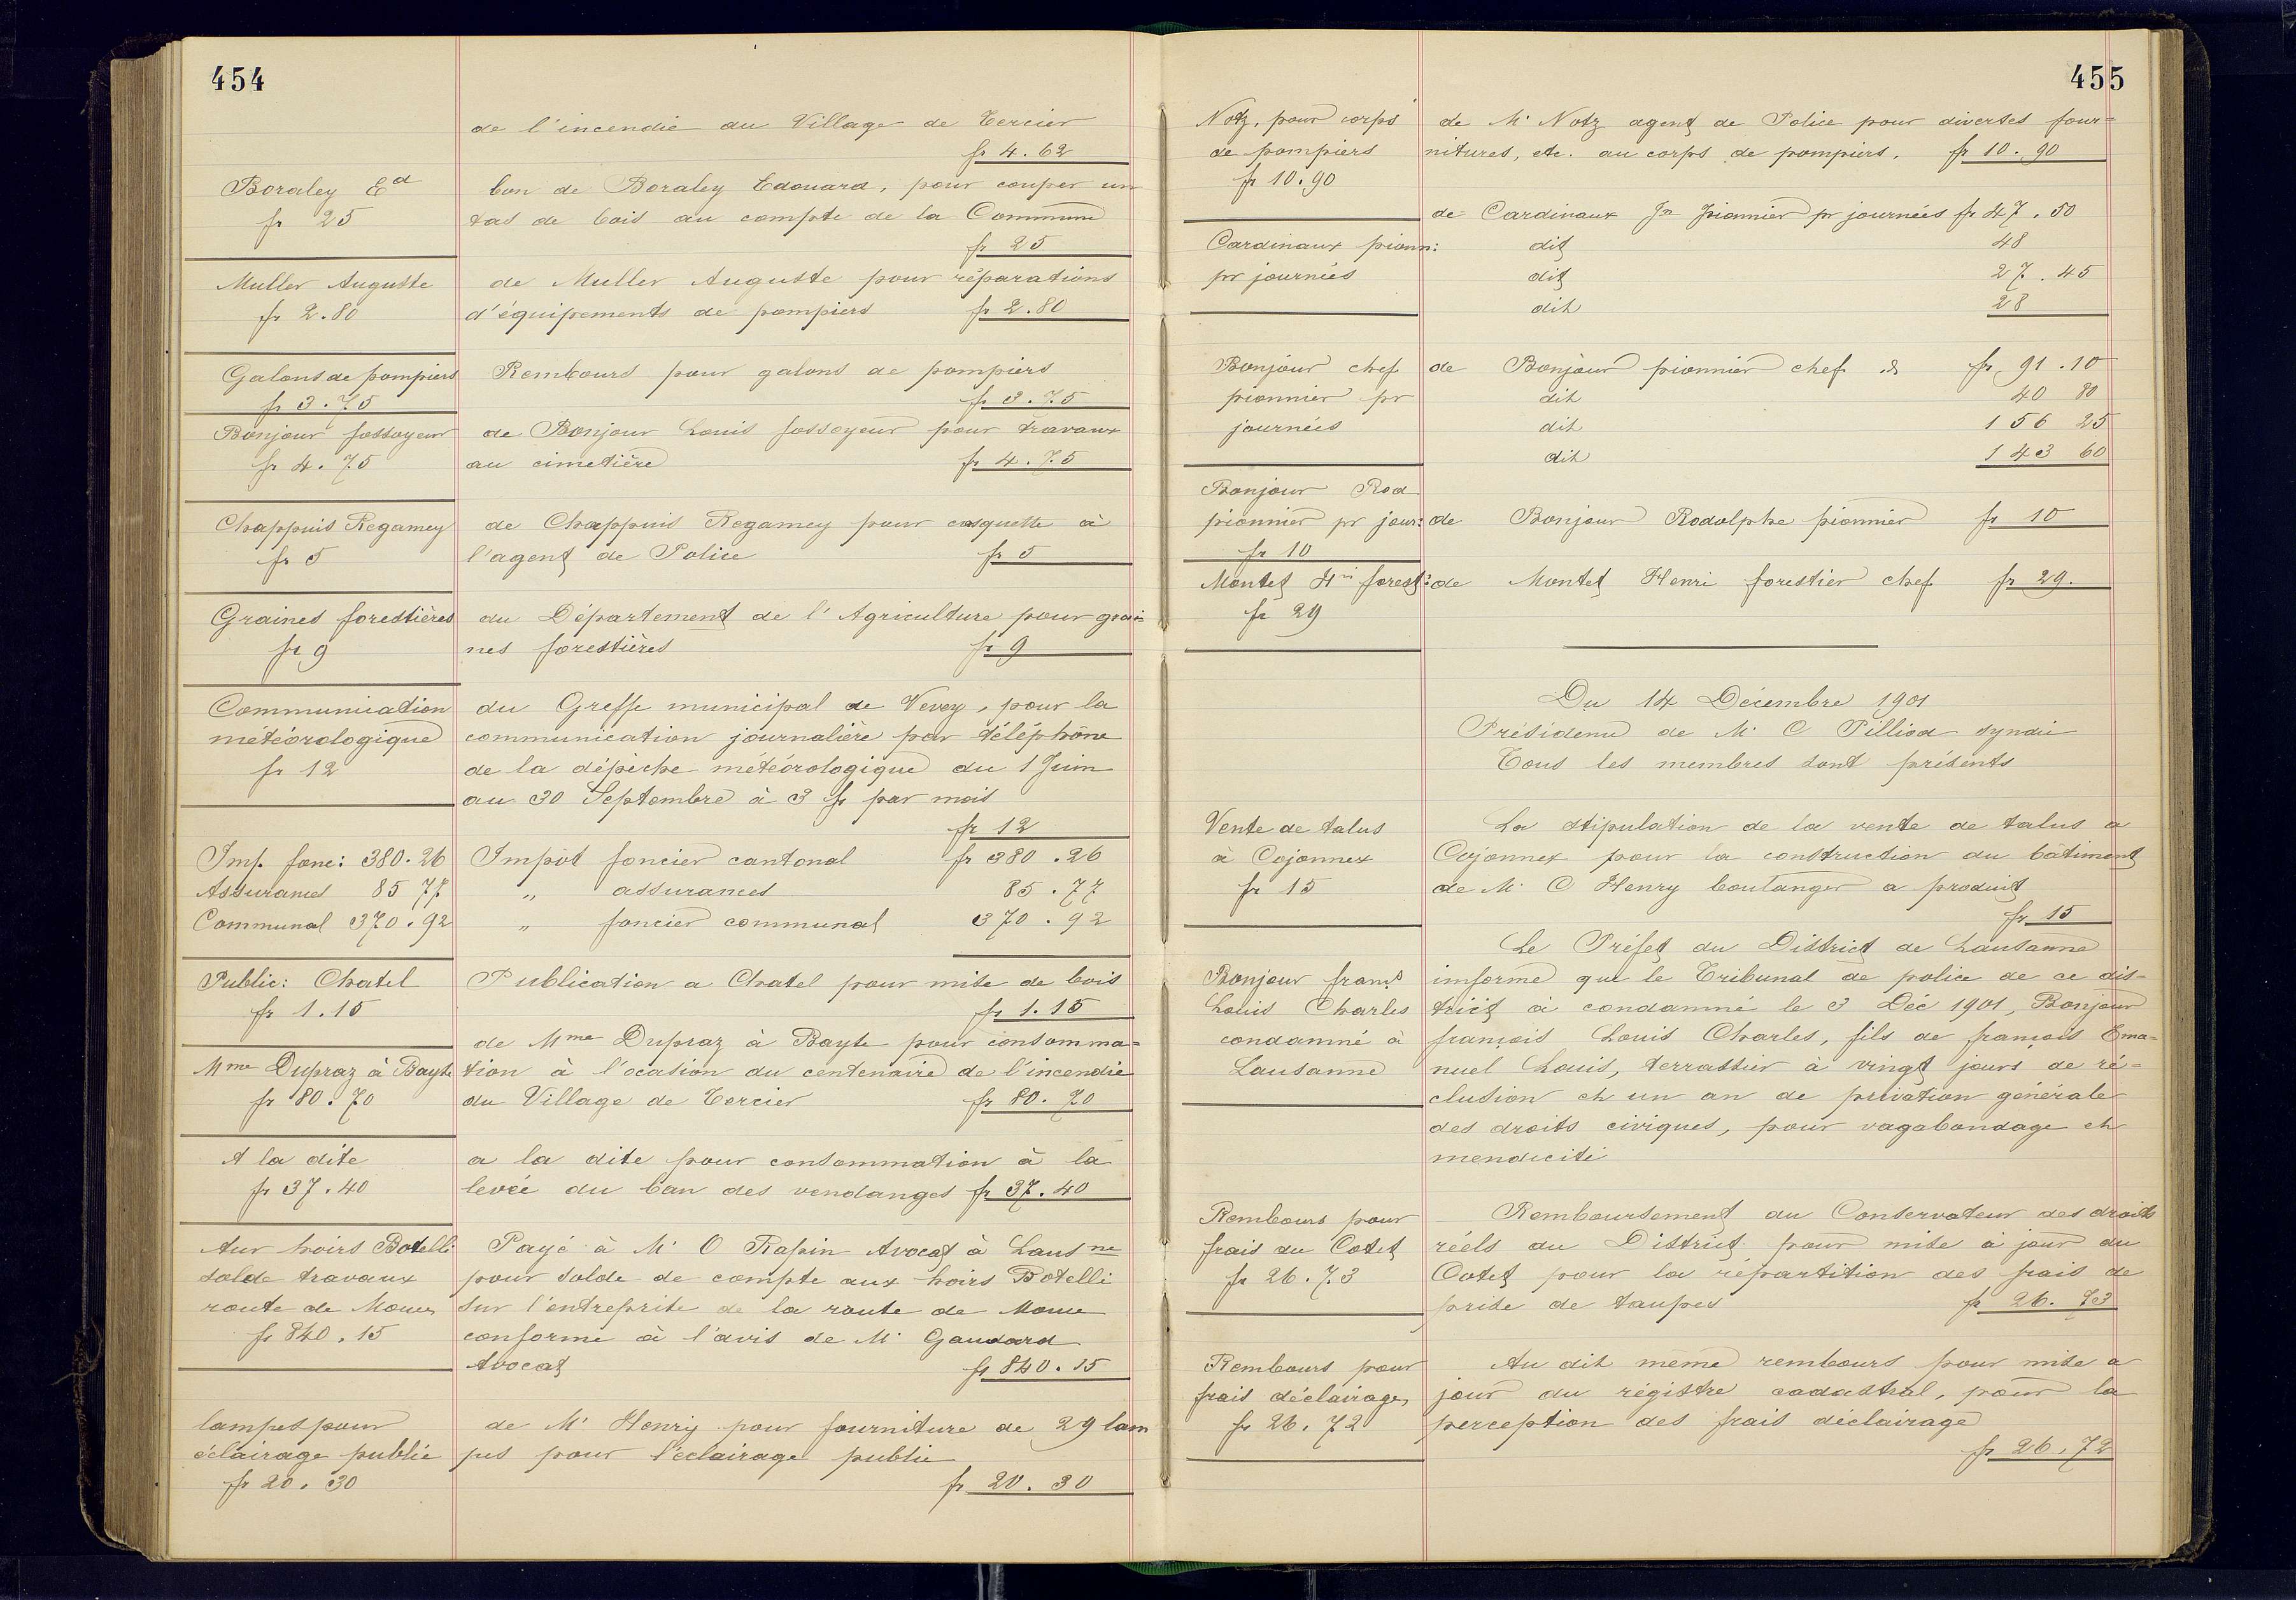 454
de l'incendie du Village de Tercier
fr 4.62
Boraley Ed
fr 25
bon de Boraley Edouard, pour couper un
tas de bois au compte de la Commune
fr 25
Muller Auguste
fr 2.80
de Muller Auguste pour réparations
d'équipements de pompiers fr 2.80
Galons de pompiers
fr 3.75
Rembours pour galons de pompiers
fr 3.75
Bonjour fossoyeur
fr 4.75
de Bonjour Louis fossoyeur pour travaux
au cimetière fr 4.75
Chappuis Regamey
fr 5
de Chappuis Regamey pour casquette à
l'agent de Police fr 5
Graines forestières
fr 9
du Département de l'Agriculture pour grai
nes forestières fr 9
Communication
météorologique
fr 12
du Greffe municipal de Vevey, pour la
communication journalière par téléphone
de la dépêche météorologique du 1 Juin
au 30 Septembre à 3 fr par mois
fr 12
Imp. fonc: 380.26
Assurances 85 77
Communal 370.92
Impôt foncier cantonal fr 380.26
" assurances 85.77
" foncier communal 370.92
Public: Chatel
fr 1.15
Publication a Chatel pour mise de bois
fr 1.15
Mme Dupraz à Bayte
fr 80.70
de Mme Dupraz à Bayte pour consomma=
tion à l'ocasion du centenaire de l'incendie
du Village de Tercier fr 80.70
A la dite
fr 37.40
a la dite pour consommation à la
levée du ban des vendanges fr 37.40
Aux hoirs Botelli
solde travaux
route de
fr 840.15
Payé à Mr O Rapin Avocat à Lausne
pour solde de compte aux hoirs Botelli
sur l'entreprise de la route de
conforme à l'avis de Mr Gaudard
Avocat fr 840.15
lampes pour
éclairage public
fr 20.30
de Mr Henry pour fourniture de 29 lam
pes pour l'éclairage public
fr 20.30
455
Notz, pour corps
de pompiers
fr 10.90
de Mr Notz agent de Police pour diverses four=
nitures, etc. au corps de pompiers. fr 10.90
Cardinaux pionn:
pr journées
de Cardinaux Jn pionnier pr journées fr 47.50
dit 48
dit 27.45
dit 28
Bonjour chef
pionnier pr
journées
de Bonjour pionnier chef fr 91.10
dit 40 80
dit 156 25
dit 143 60
Bonjour Rod
pionnier pr jour:
fr 10
de Bonjour Rodolphe pionnier fr 10
Montet Hri forest:
fr 29
de Montet Henri forestier chef fr 29.
Du 14 Décembre 1901
Présidence de Mr C Pilliod syndic
Tous les membres sont présents
Vente de talus
à Cojonnex
fr 15
La stipulation de la vente de talus a
Cojonnex pour la construction du bâtiment
de Mr C Henry boulanger a produit
fr 15
Bonjour franc̜s
Louis Charles
condamné à
Lausanne
Le Préfet du District de Lausanne
informe que le Tribunal de police de ce dis=
trict à condamné le 3 Déc 1901, Bonjour
françois Louis Charles, fils de françois Ema=
nuel Louis, terrassier à vingt jours de ré=
clusion et un an de privation générale
des droits civiques, pour vagabondage et
mendicité
Rembours pour
frais du Cotet
fr 26.73
Remboursement au Conservateur des droits
réels du District pour mise à jour du
Cotet pour la répartition des frais de
prise de taupes fr 26.73
Rembours pour
frais déclairage
fr 26.72
Au dit même rembours pour mise a
jour du régistre cadastral, pour la
perception des frais déclairage
fr 26.72